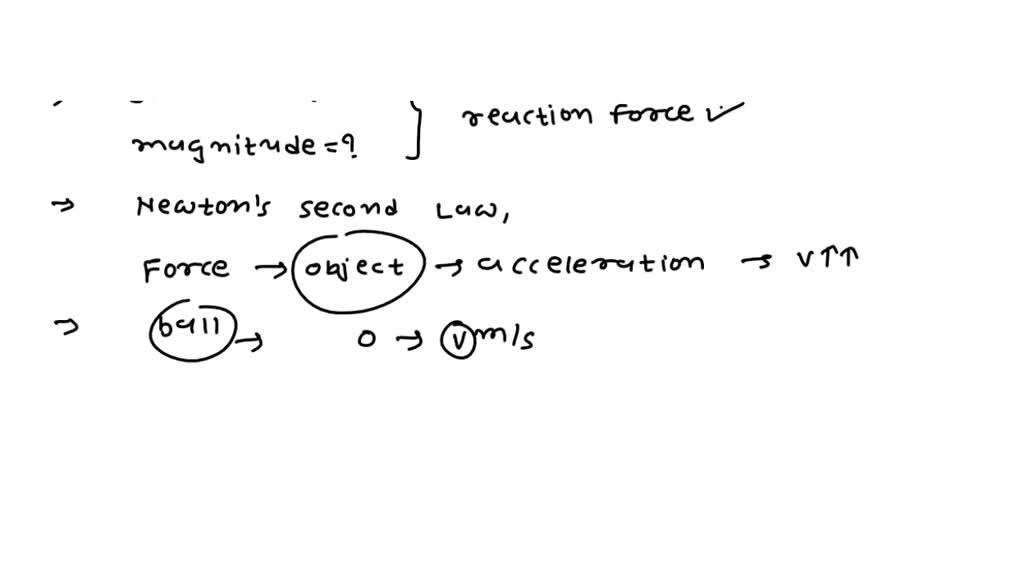 magnitude=? } reaction force ✓
→ Newton's second Law,
Force → object → acceleration → v↑↑
⇒ ball → 0 → v m/s